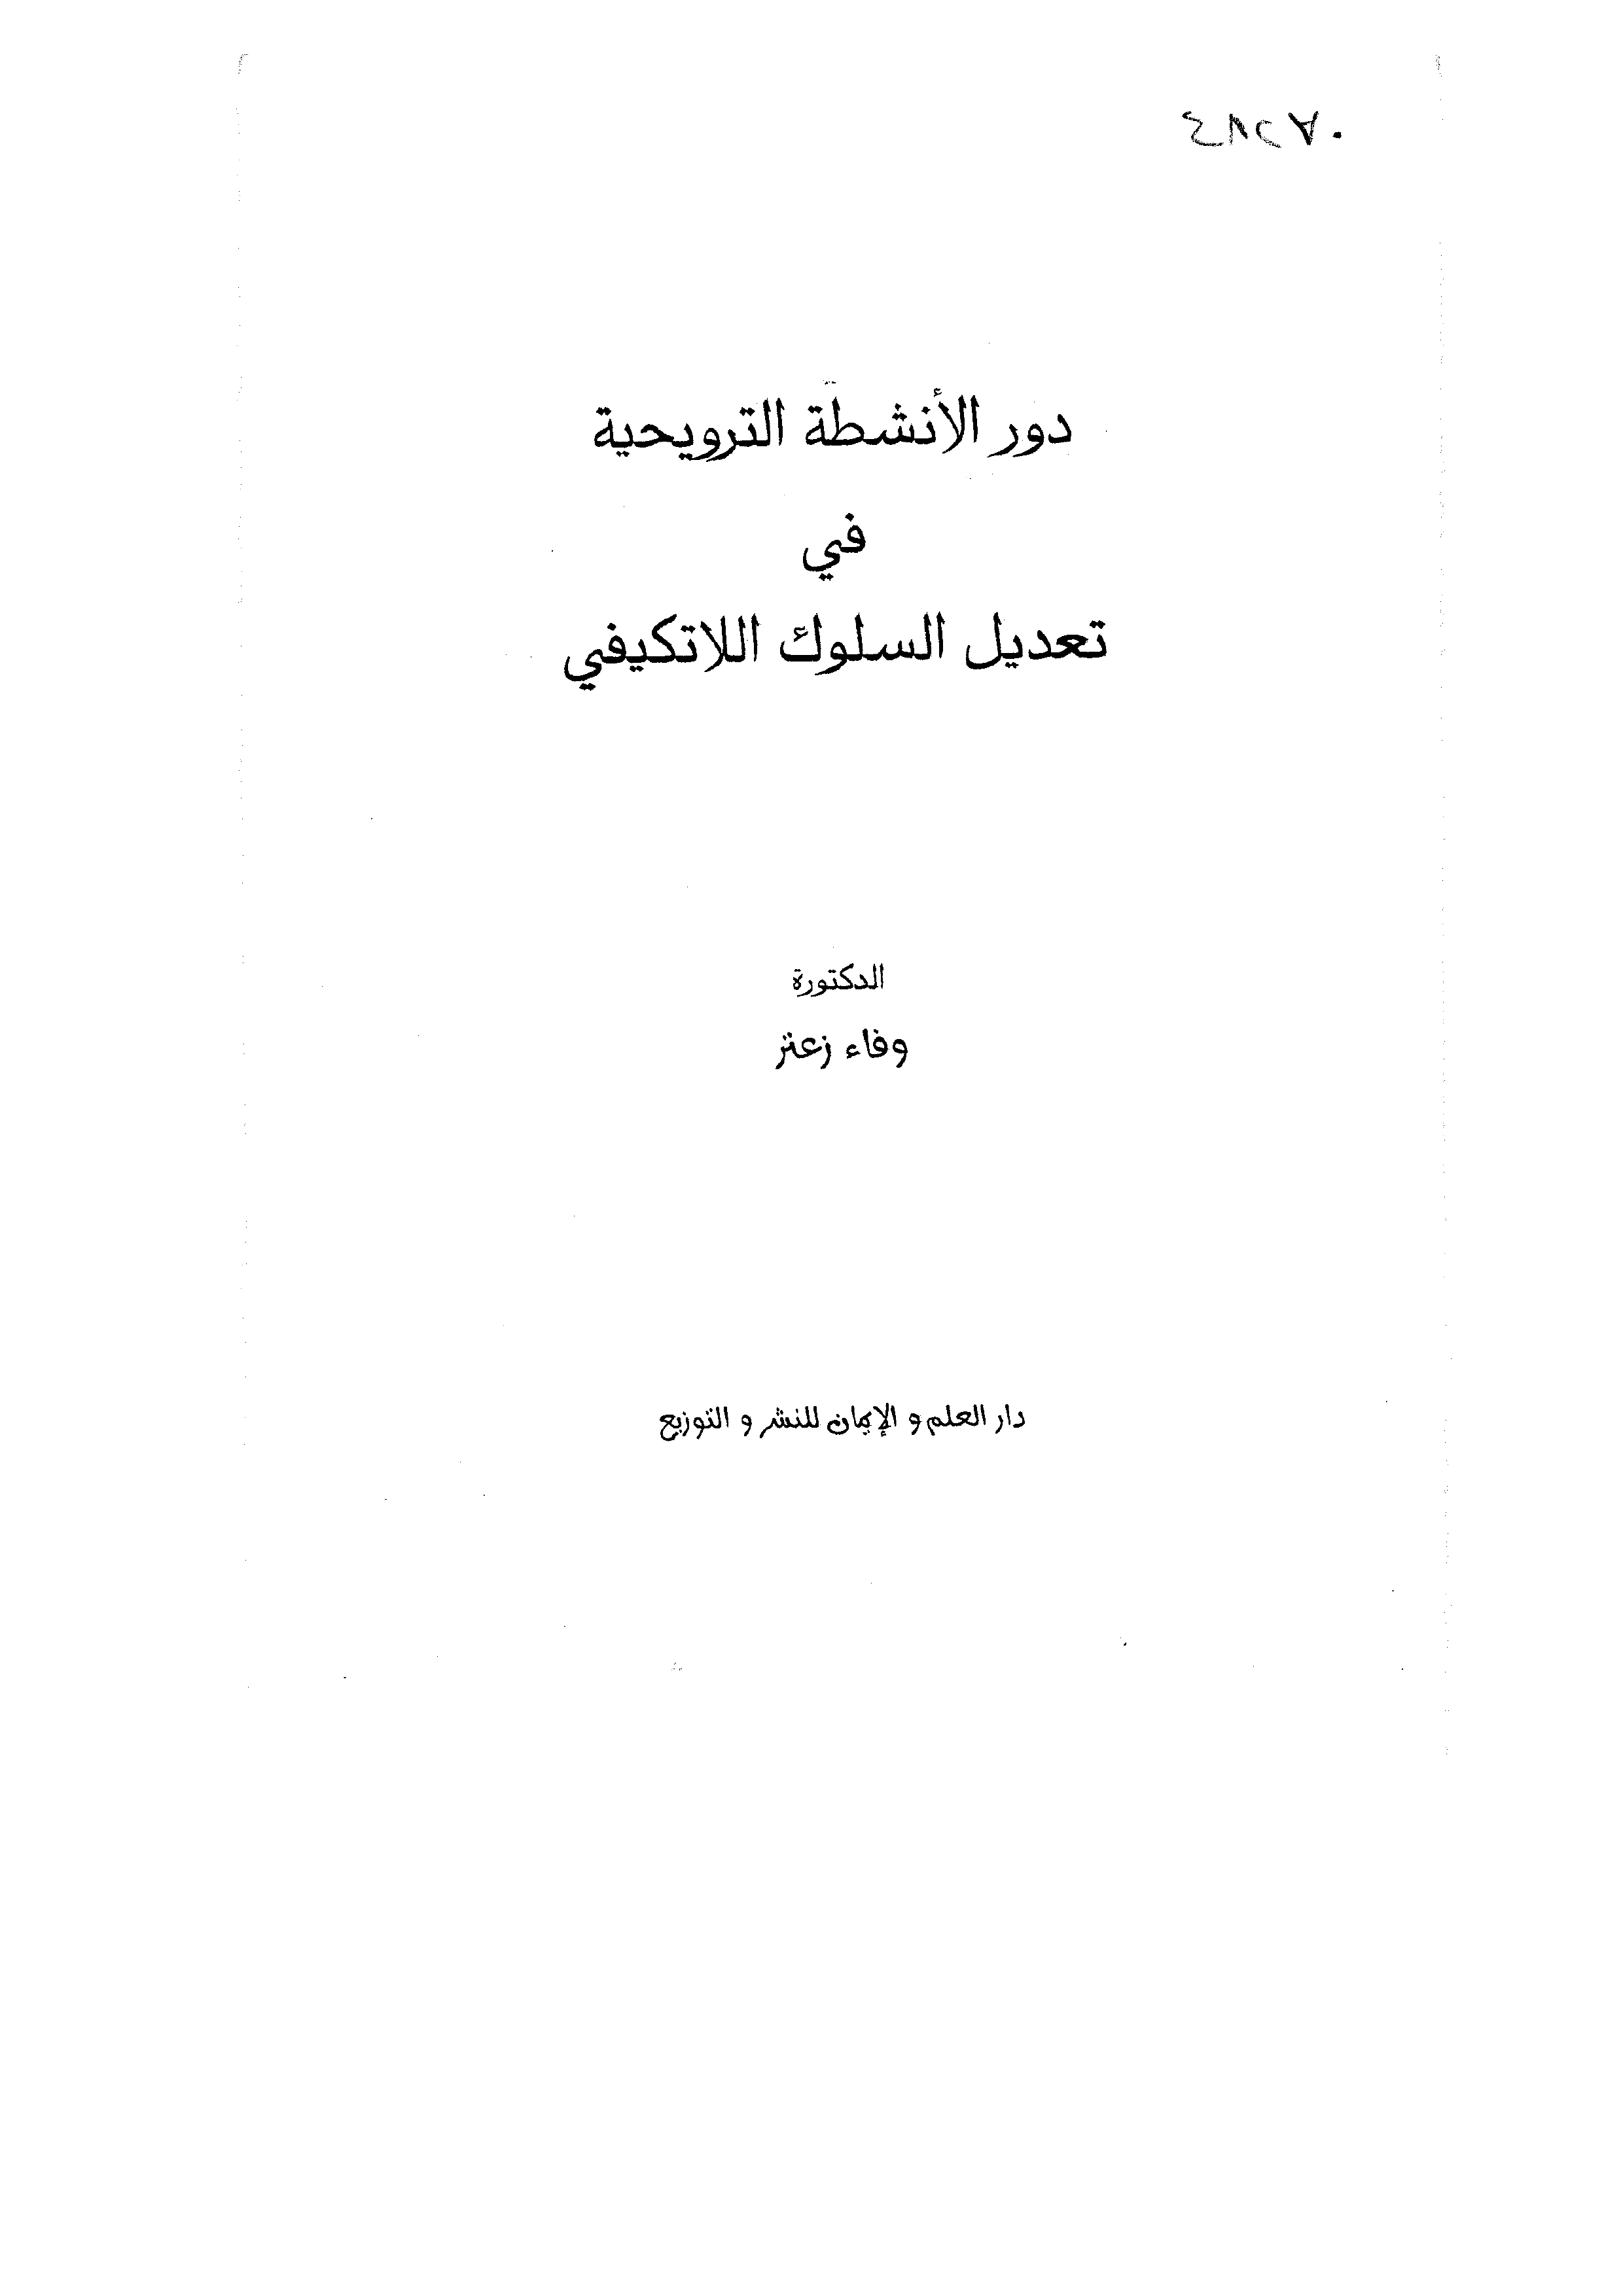 دور الأنشطة الترويحية
في
تعديل السلوك اللاتكيفي
الدكتورة
وفاء زعتر
دار العلم و الإيمان للنشر و التوزيع